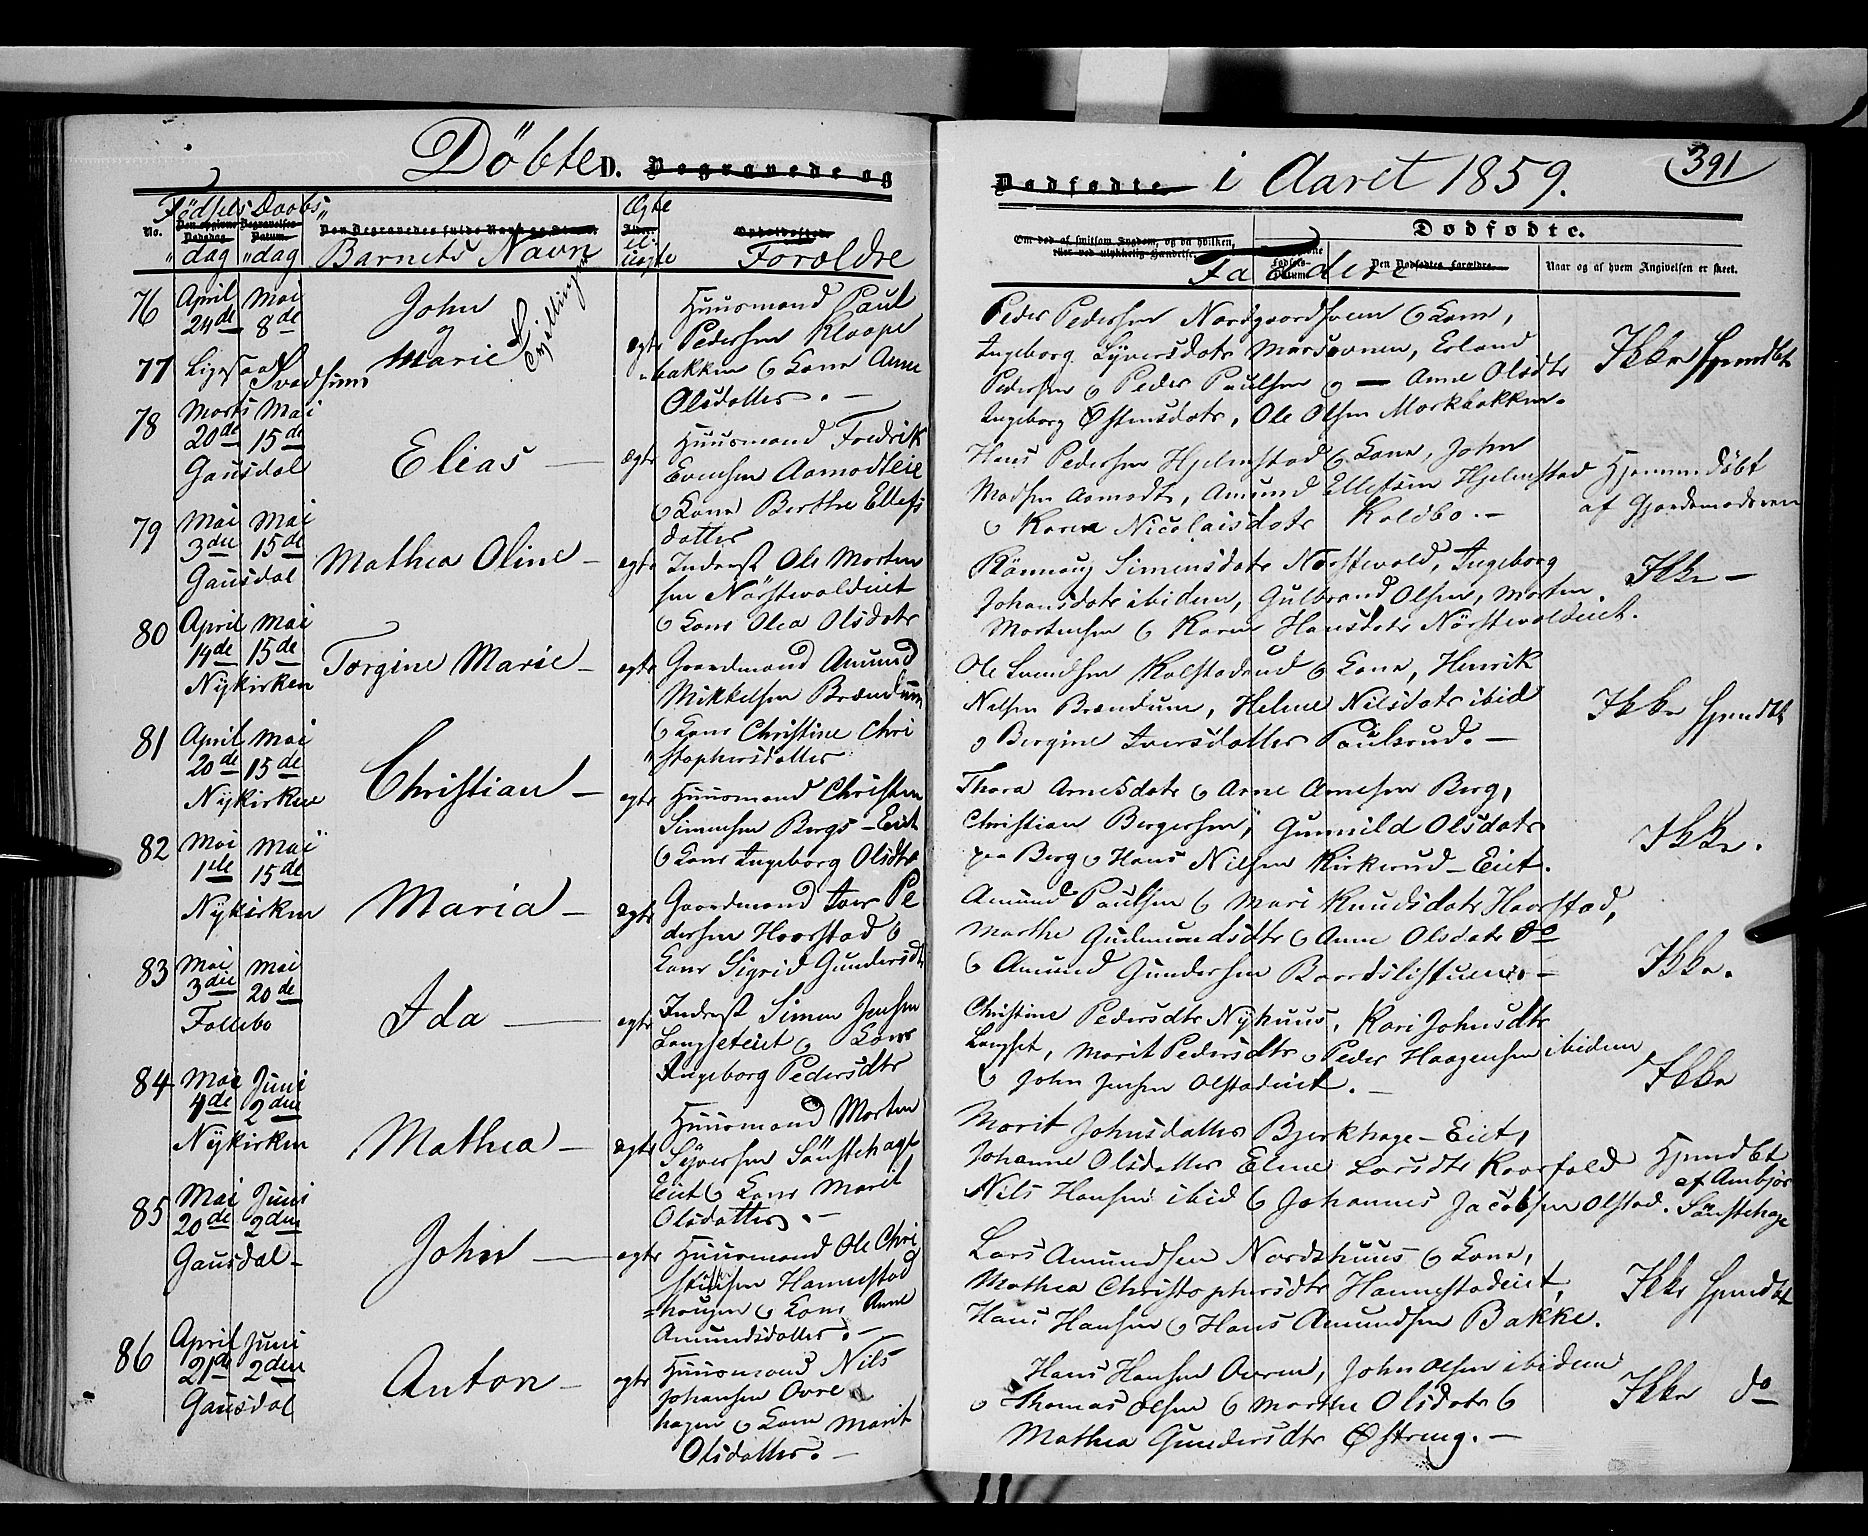 Döbte D. Begravede og
Dødfødte i Aaret 1859.
391
No.
Födsels dag
Daabs dag
Barnets Navn
Ægte el. Uægte
Forældre
Faddere
Dødfødte.
Om død af smitsom Sygdom, og da hvilken,
eller ved ulykkelig Hændelse.
Den Dødfødtes Forældre.
Naar og af hvem Angivelsen er skeet.
76 April 24de Mai 8de
John
77 Ligesaa Svadsum
og Marie Tvillinger
ægte
Huusmand Paul
Pedersen Klaape
bakken & Kone Anne
Olsdatter. —
Peder Pedersen Nordgaardsveen & Kone,
Ingeborg Syversdatr Marsovnen, Erland
Pedersen & Peder Paulsen & — Anne Olsdtr
Ingeborg Østensdatr, Ole Olsen Morkbakken.
Ikke hjemdbt
78 Marts 20de Mai 15de
Gausdal
Elias —
ægte
Huusmand Fredrik
Evensen Aamodteie
& Kone Berthe Ellefs
datter
Hans Pedersen Hjelmstad & Kone, John
Madsen Aamodt, Amund Ellefsen Hjelmstad
& Karen Nicolaisdatr Koldbo. —
Hjemmedöbt
af Gjordemoderen
79 Mai 3die Mai 15de
Gausdal
Mathea Oline —
ægte
Inderst Ole Morten
sen Nörstevoldeiet
& Kone Olea Olsdatr
Rönnaug Simensdatr Nörstevold, Ingeborg
Johansdatr ibidem, Gulbrand Olsen, Morten
Mortensen & Karen Hansdatr Nörstevoldeiet.
Ikke —
80 April 14de Mai 15de
Nykirken
Torgine Marie —
ægte
Gaardmand Amund
Mikkelsen Brændum
& Kone Christine Chri
stophersdatter
Ole Svendsen Kolstadrud & Kone, Henrik
Nilsen Brændum, Helene Nilsdatr ibid
& Bergine Iversdatter Paulsrud. —
Ikke hjemdbt
81 April 20de Mai 15de
Nykirken
Christian —
ægte
Huusmand Christen
Simensen Bergs-Eiet
& Kone Ingeborg Olsdtr
Thora Arnesdatr & Arne Arnesen Berg,
Christian Bergersen, Gunnild Olsdatr
paa Berg & Hans Nilsen Kirkerud-Eiet.
Ikke.
82 Mai 1ste Mai 15de
Nykirken
Maria —
ægte
Gaardmand Iver Pe
dersen Haarstad &
Kone Sigrid Gundersdtr
Amund Paulsen & Mari Knudsdatr Haarstad,
Marthe Gudmundsdtr & Anne Olsdatr do
& Amund Gundersen Baardslistuen. —
Ikke.
83 Mai 3die Mai 20de
Follebo
Ida —
ægte
Inderst Simen Jensen
Langseteiet & Kone
Ingeborg Pedersdtr
Christine Pedersdtr Nyhuus, Kari Johnsdtr
Langset, Marit Pedersdtr & Peder Haagensen ibidem
& John Jensen Olstadeiet. —
Ikke
84 Mai 4de Juni 2den
Nykirken
Mathea —
ægte
Huusmand Morten
Syversen Sönstehage
Eiet & Kone Marit
Olsdatter. —
Marit Johnsdatter Bjerkhage-Eiet,
Johanne Olsdatter Eline Larsdtr
Nils Hansen ibid & Johannes Jacobsen Olstad.
Hjemdbt
af Ambjör
Sönstehage
85 Mai 20de Juni 2den
Gausdal —
John —
ægte
Huusmand Ole Chri
stiansen Hannestad
hougen & Kone Anne
Amundsdatter. —
Lars Amundsen Nordshuus & Kone,
Mathea Christophersdtr Hannestadeiet,
Hans Hansen & Hans Amundsen Bakke.
Ikke hjemdbt
86 April 21de Juni 2den
Gausdal
Anton —
ægte
Huusmand Nils
Johansen Ovre
hagen & Kone Marit
Olsdatter. —
Hans Hansen Avren, John Olsen ibidem
& Thomas Olsen & Marthe Olsdatr &
Mathea Gundersdtr Østreng. —
Ikke do